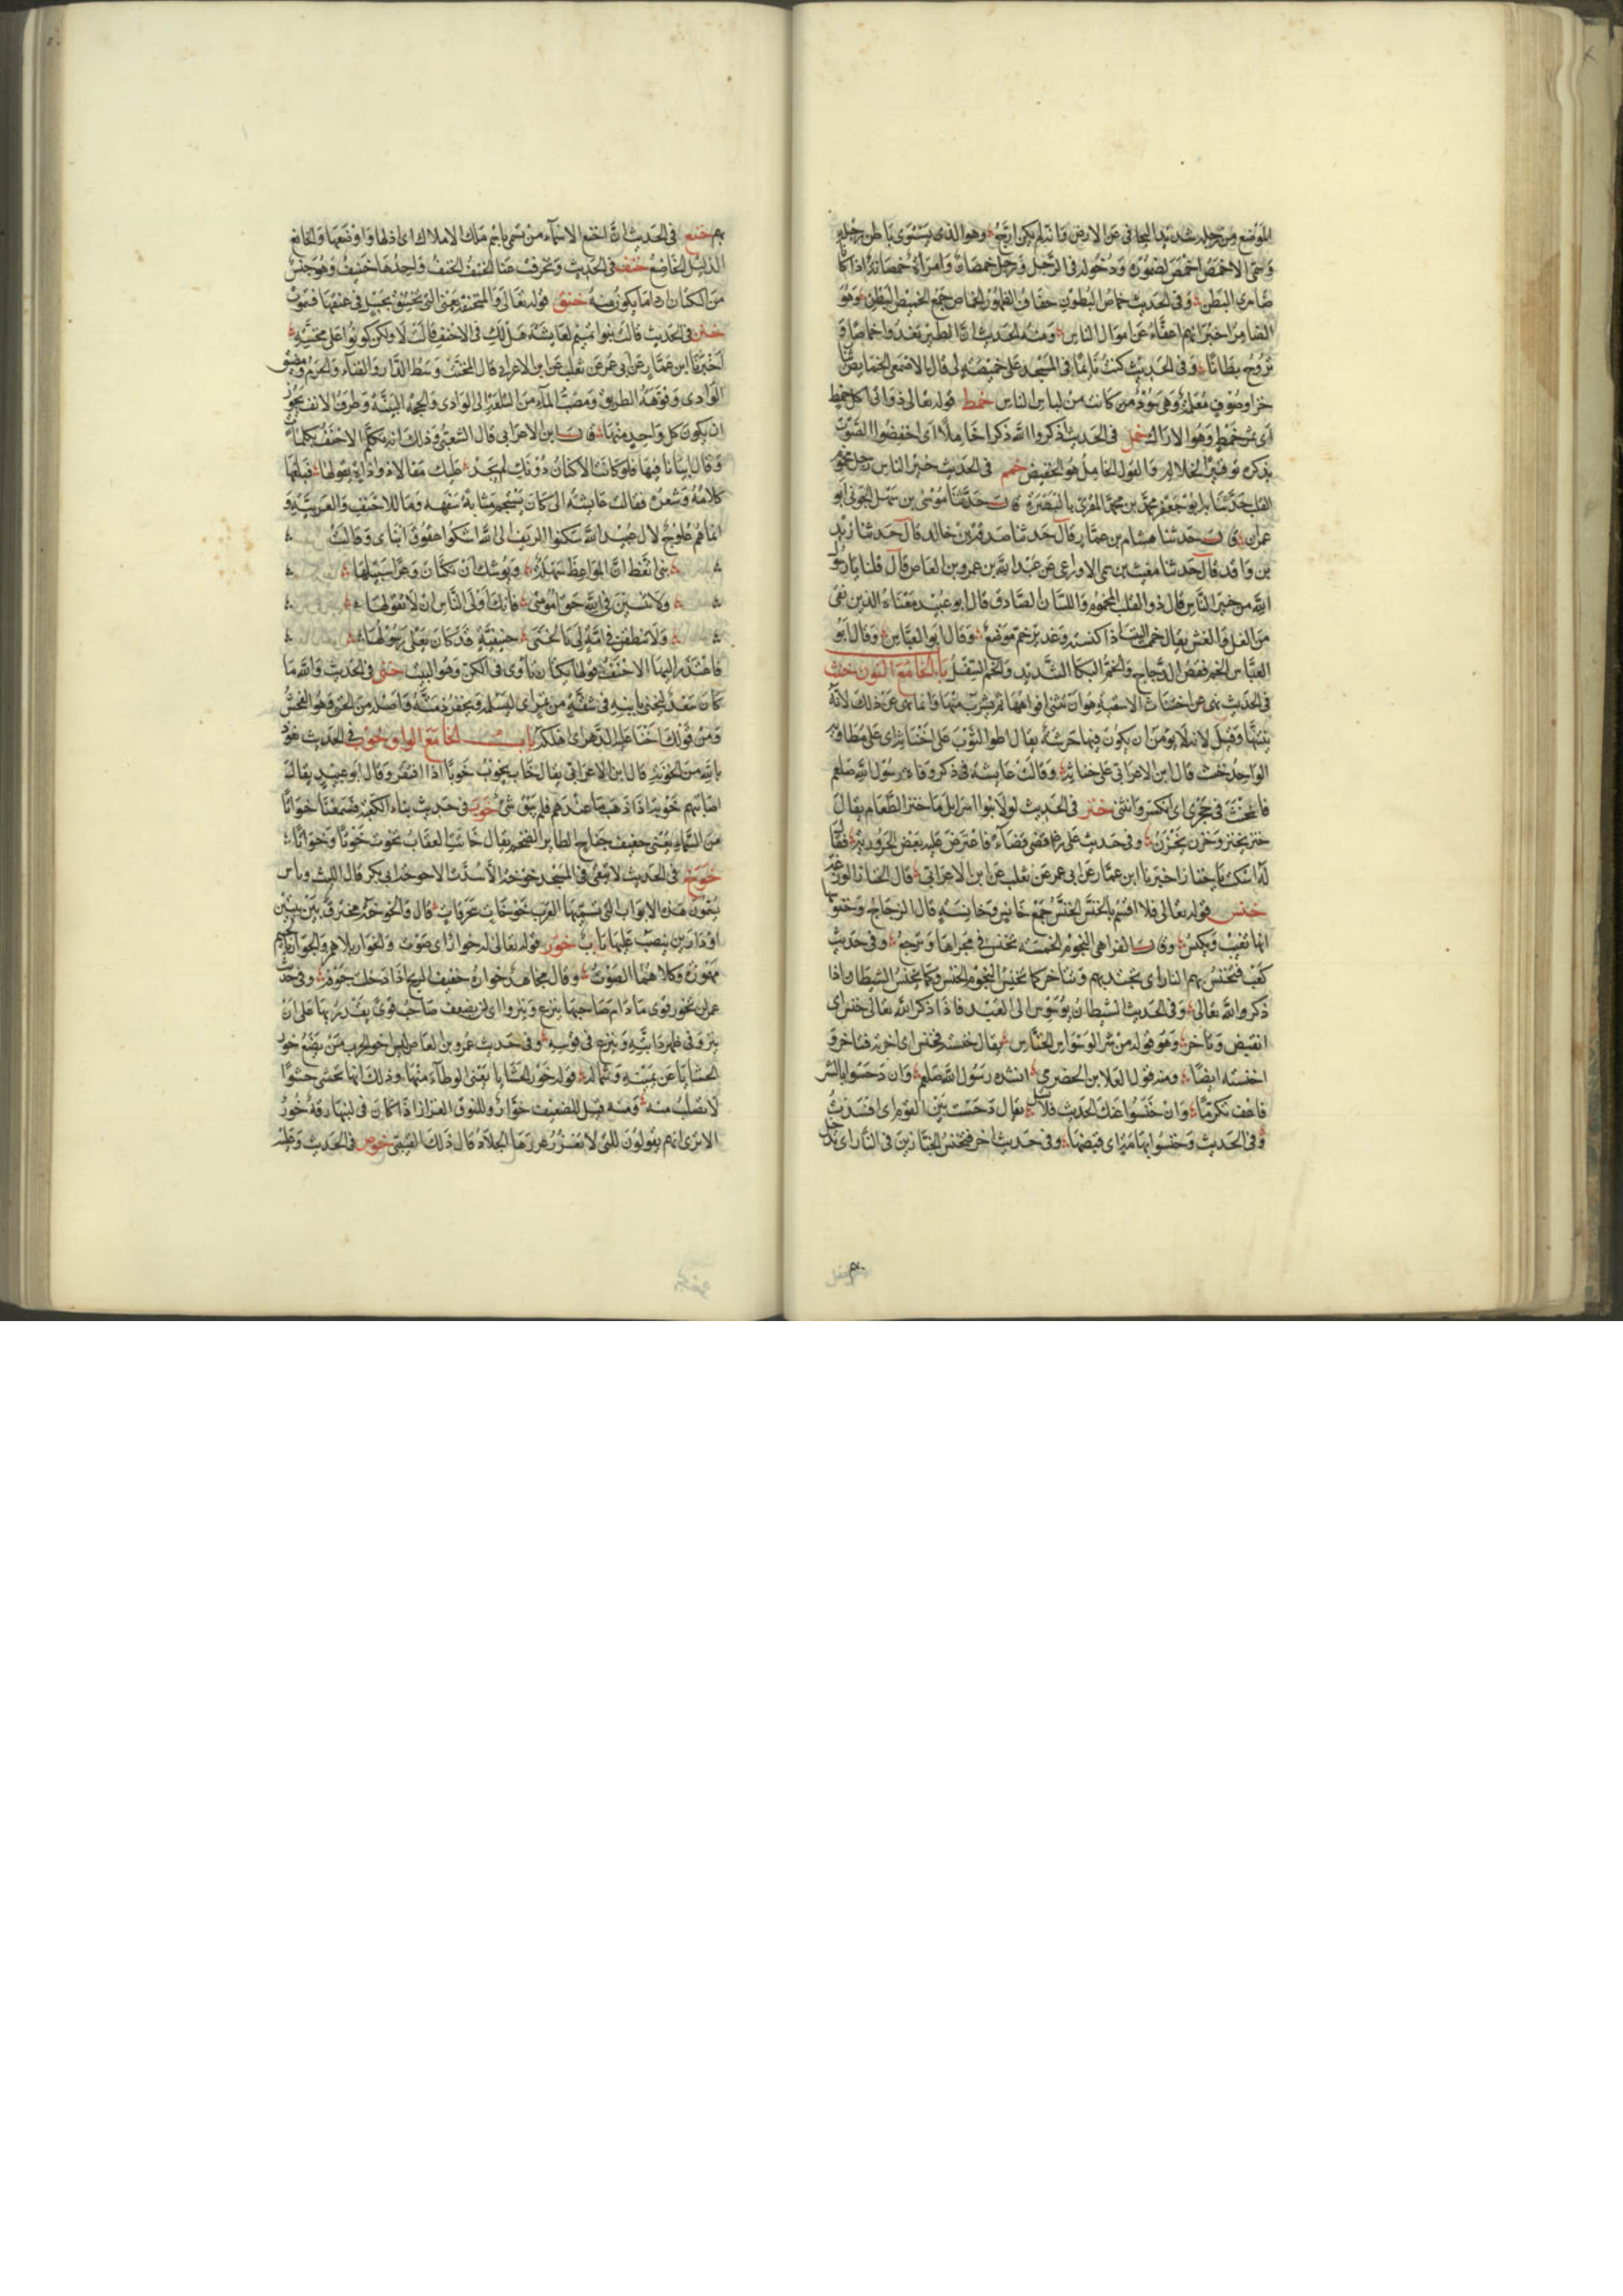 الموضع من رجله شديد التجافي عن الارض فانه لم يكن ارح وهو الذي يستوي باطن رجله
وسمي الاخمص اخمص لضموره ودخوله في الرجل ورجل خمصان وامراة خمصانة اذا كانا
ضامري البطن وفي الحديث خماص البطون خفاف الظهور الخماص جمع الخميص البطن وهو
الضامر اخبر انهم اعفاء عن اموال الناس ومنه الحديث ان الطير تغدوا خماصا و
تروح بطانا وفي الحديث كنت نايما في المسجد على خميصة لي قال الاصمعي الخمايص ثياب
خز او صوف معلمة وهي سود من كانت من لباس الناس خمط قوله تعالى ذواتي اكل خمط
اي ثمر خمط وهو الاراك خمل في الحديث اذكروا الله ذكرا خاملا اي اخفضوا الصوت
بذكره توقيرا لجلاله والقول الخامل هو الخفيض خمم في الحديث خير الناس رجل مخموم
القلب حدثنا ابو جعفر محمد بن محمد المقري بالبصرة قال حدثنا موسى بن سهل الجوني ابو
عمران قال حدثنا هشام بن عمار قال حدثنا صدقة بن خالد قال حدثنا زيد
بن واقد قال حدثنا مغيث بن سمي الاوزاعي عن عبد الله بن عمرو بن العاص قال قلنا يا رسول
الله من خير الناس قال ذو القلب المخموم واللسان الصادق قال ابو عبيد معناه الذي نقي
من الغل والغش يقال خممت البيت اذا كنسته وغدير خم موضع وقال ابو العباس وقال ابو
العباس الخم قفص الدجاج والخم البكا الشديد والخم الثقيل باب الخا مع النون خنث
في الحديث نهى عن اختناث الاسقية هو ان تثنى افواهها ثم يشرب منها وانما نهى عن ذلك لانه
ينتنها وقيل لانه لا يومن ان يكون فيها حرشة يقال اطو الثوب على اخناثه اي على مطاويه
الواحد خنث قال ابن الاعرابي على خناثه وقالت عايشة في ذكر وفاة رسول الله صلعم
فانخنث في حجري اي انكسر وانثنى خنز في الحديث لولا بنوا اسرايل ما خنز الطعام يقال
خنز يخنز وخزن يخزن وفي حديث علي رضه قضى قضاء فاعترض عليه بعض الحرورية فقال
له اسكت يا خناز اخبرنا ابن عمار عن ابي عمر عن ثعلب عن ابن الاعرابي قال الخناز الوزغة
خنس قوله تعالى فلا اقسم بالخنس الخنس جمع خانس وخانسة قال الزجاج وخنوسها
انها تغيب وتكنس وقال الفرا هي النجوم الخمسة تخنس في مجراها وترجع وفي حديث
كعب فتخنس بهم النار اي تجتذبهم وتتاخر كما تخنس النجوم الخنس وكما يخنس الشيطان اذا
ذكر والله تعالى وفي الحديث الشيطان يوسوس الى العبد فاذا ذكر الله تعالى خنس اي
انقبض وتاخر وهو قوله من شر الوسواس الخناس يقال خنسه فخنس اي اخره فتاخر و
اخنسته ايضا ومنه قول العلا بن الحضرمي انشده رسول الله صلعم وان دحسوا بالشر
فاعف تكرما وان خنسوا عنك الحديث فلا تسل يقال دحست بين القوم اي افسدت
وفي الحديث وخنس ابهامه اي قبضها وفي حديث اخر فتخنس الجبارين في النار اي تدخل
بهم خنع في الحديث ان اخنع الاسماء من تسمى باسم ملك الاملاك اي اذلها واوضعها والخانع
الذليل الخاضع خنف في الحديث وتخرقت عنا الخنف الخنف واحدها خنيف وهو جنس
من الكتان اردا ما يكون منه خنق قوله تعالى والمنخنقة يعني التي تختنق بحبل في عنقها فتموت
خنن في الحديث قالت بنوا تميم لعايشة هل لك في الاحنف قالت لا ولكن كونوا على مخنته
اخبرنا ابن عمار عن ابي عمر عن ثعلب عن ابن الاعرابي قال المخنة وسط الدار والفناء والحرم ومضيق
الوادي وفوهة الطريق ومصب الماء من التلعة الى الوادي والمحجة البينة وطرف الانف يجوز
ان يكون كل واحد منها قال ابن الاعرابي قال الشعبي وذلك انه تكلم الاحنف بكلمات
وقال ابياتا فيها فلو كانت الاكنان دونك لم يجد عليك مقالا ذو اذاة يقولها فبلغها
كلامه وشعره فقالت عايشة الي كان يستجم مثابة سفهه وما للاحنف والعربية و
انما هم علوج لال عبيد الله سكنوا الريف الى الله اشكوا عقوق ابنائي وقالت
بني اتعظ ان المواعظ سهلة ويوشك ان تكتان وعرا سبيلها
ولا تنسين في الله حق امومتي فانك اولى الناس ان لا تقولها
ولا تنطقن في امة لي بالخنى حنيفية قد كان بعلي رسولها
فاعتذر اليها الاحنف قولها تكتان تاوى في الكن وهو البيت خنى في الحديث والله ما
كان سعد ليخني بابنه في شقة من تمر اي ليسلمه ويخفر ذمته واصله من الخنى وهو الفحش
ومن قولك اخنا عليه الدهر اي اهلكه باب الخا مع الواو خوب في الحديث نعوذ
بالله من الخوبة قال ابن الاعرابي يقال خاب يخوب خوبا اذا افتقر وقال ابو عبيد يقال
اصابتهم خوبة اذا ذهب ما عندهم فلم يبق شئ خوت في حديث بناء الكعبة فسمعنا خواتا
من السماء يعني حفيف جناح الطاير الضخم يقال خاتت العقاب تخوت خوتا وخواتا
خوخ في الحديث لا تبقى في المسجد خوخة الا سدت الا خوخة ابي بكر قال الليث وناس
يسمون هذه الابواب التي تسميها العرب خوخات قال والخوخة مخترق بين بيتين
او دارين ينصب عليها باب خور قوله تعالى له خوار اي صوت والخوار بلا همز والجوار بالجيم
مهموزة وكلاهما الصوت وقال مجاهد خواره حفيف الريح اذا دخلت جوفه وفي حديث
عمر لن تخور قوى ما دام صاحبها ينزع وينزوا اي لن يضعف صاحب قوى يقدر بها على ان
ينزو في ظهر دابته وينزع في قوسه وفي حديث عمرو بن العاص ليس اخو الحرب من يضع خور
الحشايا عن يمينه وشماله قوله خور الحشايا يعني الوطاء منها وذلك انها تحشى حشوا
لا تصلب منه ومنه قيل للضعيف خوار وللنوق الغزار اذا كان في لبنها رقة خور
الا ترى انهم يقولون للتي لا تغزر غزرها الجلاد قال ذلك القتيبي خوص في الحديث وعليه